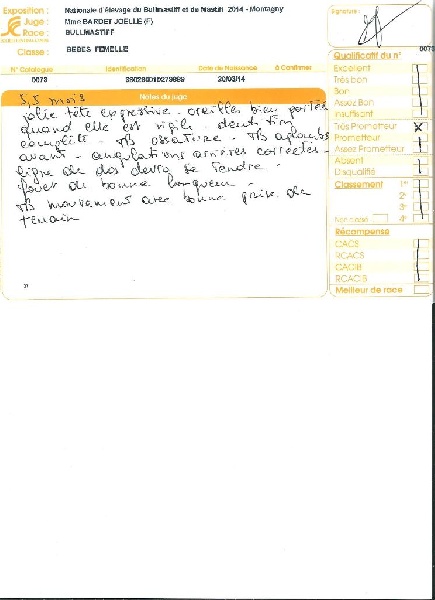 Exposition : Nationale d'élevage du Bullmastiff et du Mastiff 2014 - Montagny
Juge : Mme BARDET JOELLE (F)
Race : BULLMASTIFF
Classe : BEBES FEMELLE
Signature :
N° Catalogue Identification Date de Naissance A Confirmer
0073 20/03/14
Notes du juge
5,5 mois
jolie tête expressive. oreilles bien portées
quand elle est vigile. dentition
complète. TB ossature. TB aplombs
avant. angulations arrières correctes.
ligne de dos devra se tendre.
fouet de bonne longueur.
TB mouvement avec bonne prise de
terrain
Qualificatif du n° 0073
Excellent
Très bon
Bon
Assez Bon
Insuffisant
Très Prometteur X
Prometteur
Assez Prometteur
Absent
Disqualifié
Classement 1er
2e
3e
Non classé 4e
Récompense
CACS
RCACS
CACIB
RCACIB
Meilleur de race